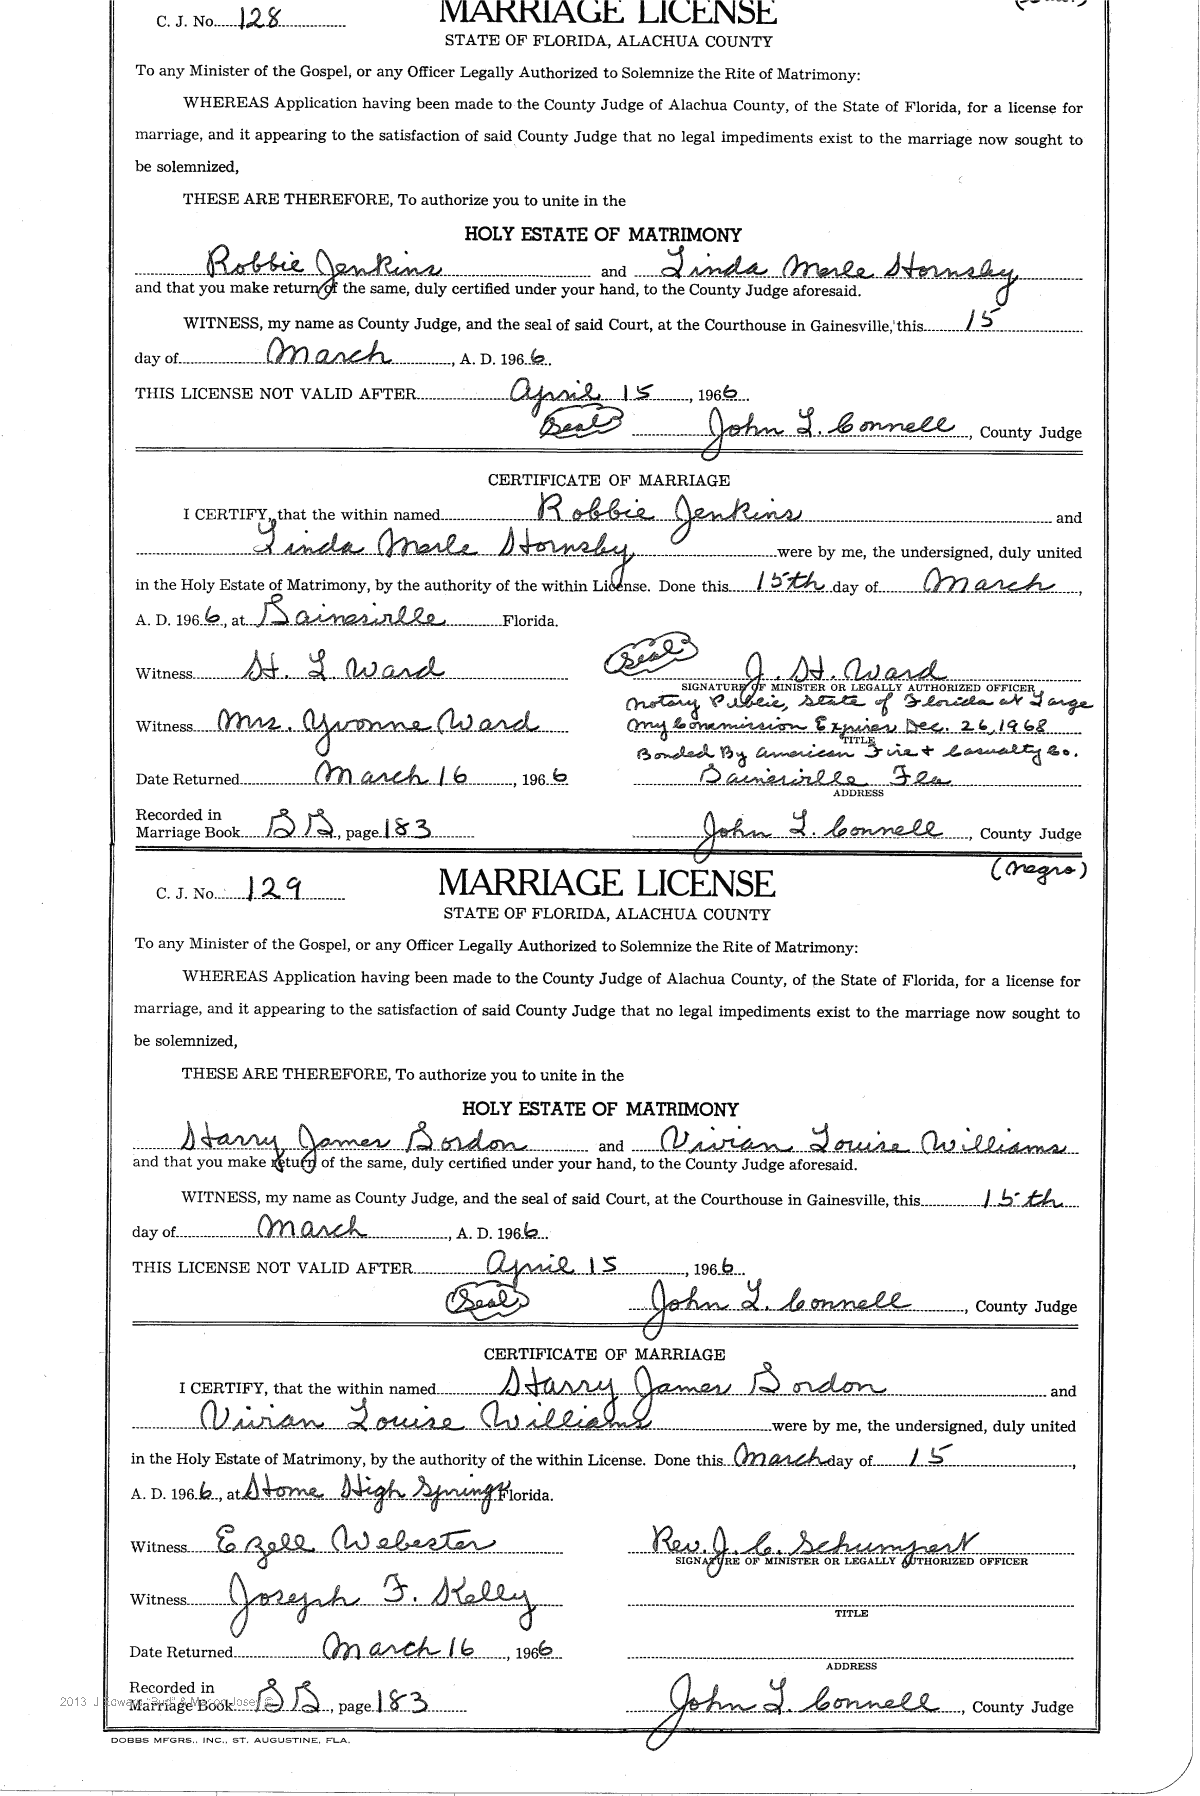 C. J. No. 128
MARRIAGE LICENSE
STATE OF FLORIDA, ALACHUA COUNTY
To any Minister of the Gospel, or any Officer Legally Authorized to Solemnize the Rite of Matrimony:
WHEREAS Application having been made to the County Judge of Alachua County, of the State of Florida, for a license for
marriage, and it appearing to the satisfaction of said County Judge that no legal impediments exist to the marriage now sought to
be solemnized,
THESE ARE THEREFORE, To authorize you to unite in the
HOLY ESTATE OF MATRIMONY
Robbie Jenkins and Linda Merle Hornsby
and that you make return of the same, duly certified under your hand, to the County Judge aforesaid.
WITNESS, my name as County Judge, and the seal of said Court, at the Courthouse in Gainesville, this 15
day of March, A. D. 1966.
THIS LICENSE NOT VALID AFTER April 15, 1966
(Seal) John L. Connell, County Judge
CERTIFICATE OF MARRIAGE
I CERTIFY, that the within named Robbie Jenkins and
Linda Merle Hornsby were by me, the undersigned, duly united
in the Holy Estate of Matrimony, by the authority of the within License. Done this 15th day of March,
A. D. 1966, at Gainesville Florida.
Witness H. L Ward (Seal) J. H. Ward
SIGNATURE OF MINISTER OR LEGALLY AUTHORIZED OFFICER
Notary Public, State of Florida at Large
Witness Mrs. Yvonne Ward My Commission Expires Dec. 26, 1968
TITLE
Bonded By American Fire & Casualty Co.
Date Returned March 16, 1966 Gainesville Fla
ADDRESS
Recorded in
Marriage Book BB, page 183 John L. Connell, County Judge
(Negro)
C. J. No. 129
MARRIAGE LICENSE
STATE OF FLORIDA, ALACHUA COUNTY
To any Minister of the Gospel, or any Officer Legally Authorized to Solemnize the Rite of Matrimony:
WHEREAS Application having been made to the County Judge of Alachua County, of the State of Florida, for a license for
marriage, and it appearing to the satisfaction of said County Judge that no legal impediments exist to the marriage now sought to
be solemnized,
THESE ARE THEREFORE, To authorize you to unite in the
HOLY ESTATE OF MATRIMONY
Harry James Gordon and Vivian Louise Williams
and that you make return of the same, duly certified under your hand, to the County Judge aforesaid.
WITNESS, my name as County Judge, and the seal of said Court, at the Courthouse in Gainesville, this 15th
day of March, A. D. 1966.
THIS LICENSE NOT VALID AFTER April 15, 1966
(Seal) John L. Connell, County Judge
CERTIFICATE OF MARRIAGE
I CERTIFY, that the within named Harry James Gordon and
Vivian Louise Williams were by me, the undersigned, duly united
in the Holy Estate of Matrimony, by the authority of the within License. Done this March day of 15,
A. D. 1966, at Home High Springs Florida.
Witness Ezell Webester Rev. J. C. Schumpert
SIGNATURE OF MINISTER OR LEGALLY AUTHORIZED OFFICER
Witness Joseph F. Kelly
TITLE
Date Returned March 16, 1966
ADDRESS
Recorded in
Marriage Book BB, page 183 John L. Connell, County Judge
DOBBS MFGRS., INC., ST. AUGUSTINE, FLA.